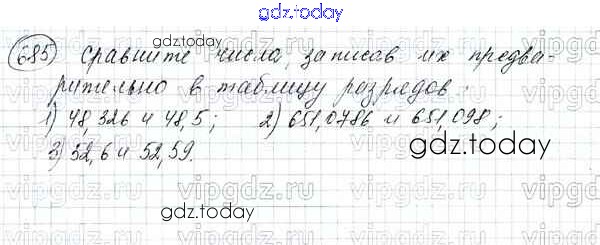 gdz.today
685) Сравните числа, записав их предва-
рительно в таблицу разрядов:
1) 48,326 и 48,5; 2) 651,0786 и 651,098;
3) 52,6 и 52,59.
gdz.today
gdz.today